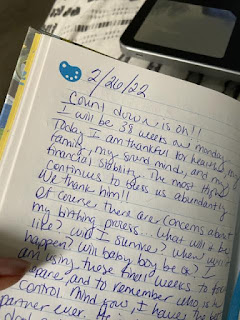 2/26/22
Count down is on!!
I will be 38 weeks on monday
Today I am thankful for health, my
family, my sound mind, and my
financial stability. The most high
continues to bless us abundantly
We thank him!!
Of course there are concerns about
my birthing process... What will it be
like? will I survive? when will it
happen? will baby boy be ok? I
am using these final weeks to
prepare, and to remember who is in
control. mind you, I have the best
partner ever.